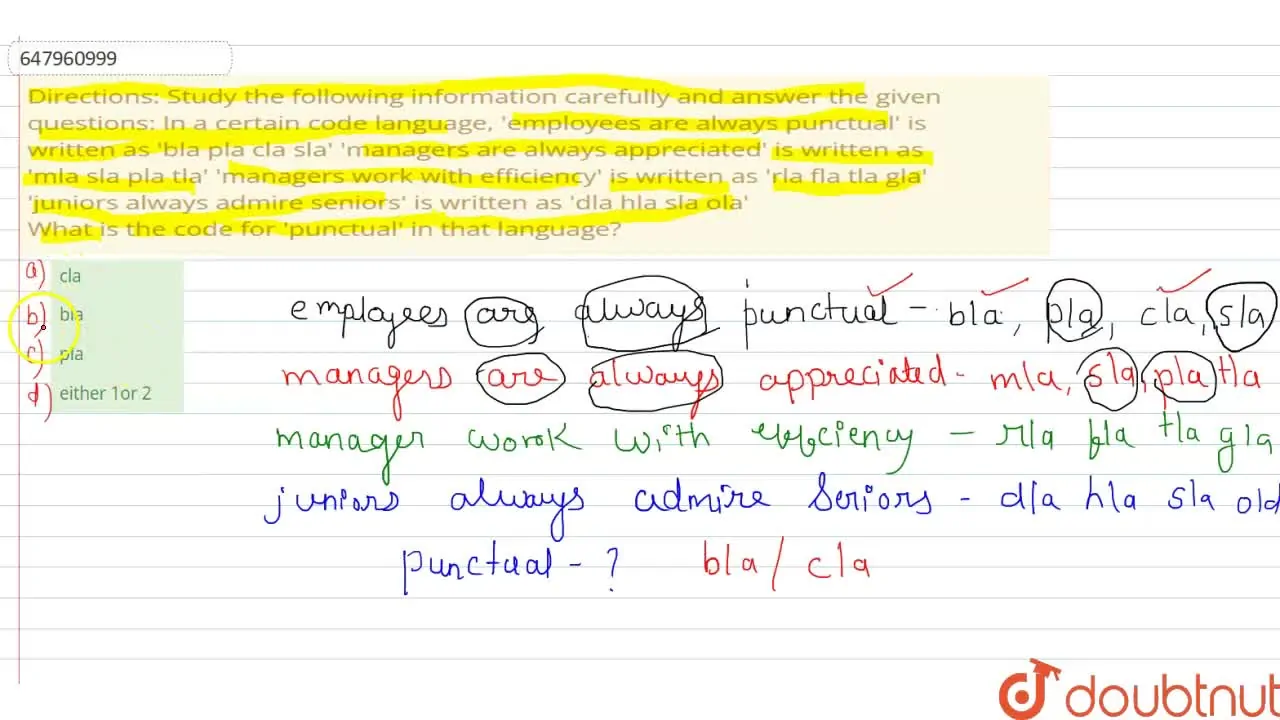 647960999
Directions: Study the following information carefully and answer the given
questions: In a certain code language, 'employees are always punctual' is
written as 'bla pla cla sla' 'managers are always appreciated' is written as
'mla sla pla tla' 'managers work with efficiency' is written as 'rla fla tla gla'
'juniors always admire seniors' is written as 'dla hla sla ola'
What is the code for 'punctual' in that language?
a) cla
b) bla
c) pla
d) either 1or 2
employees are always punctual - bla, pla, cla, sla
managers are always appreciated - mla, sla, pla tla
manager work with effciency - rla fla tla gla
juniors always admire Seriors - dla hla sla ola
punctual - ? bla / cla
doubtnut